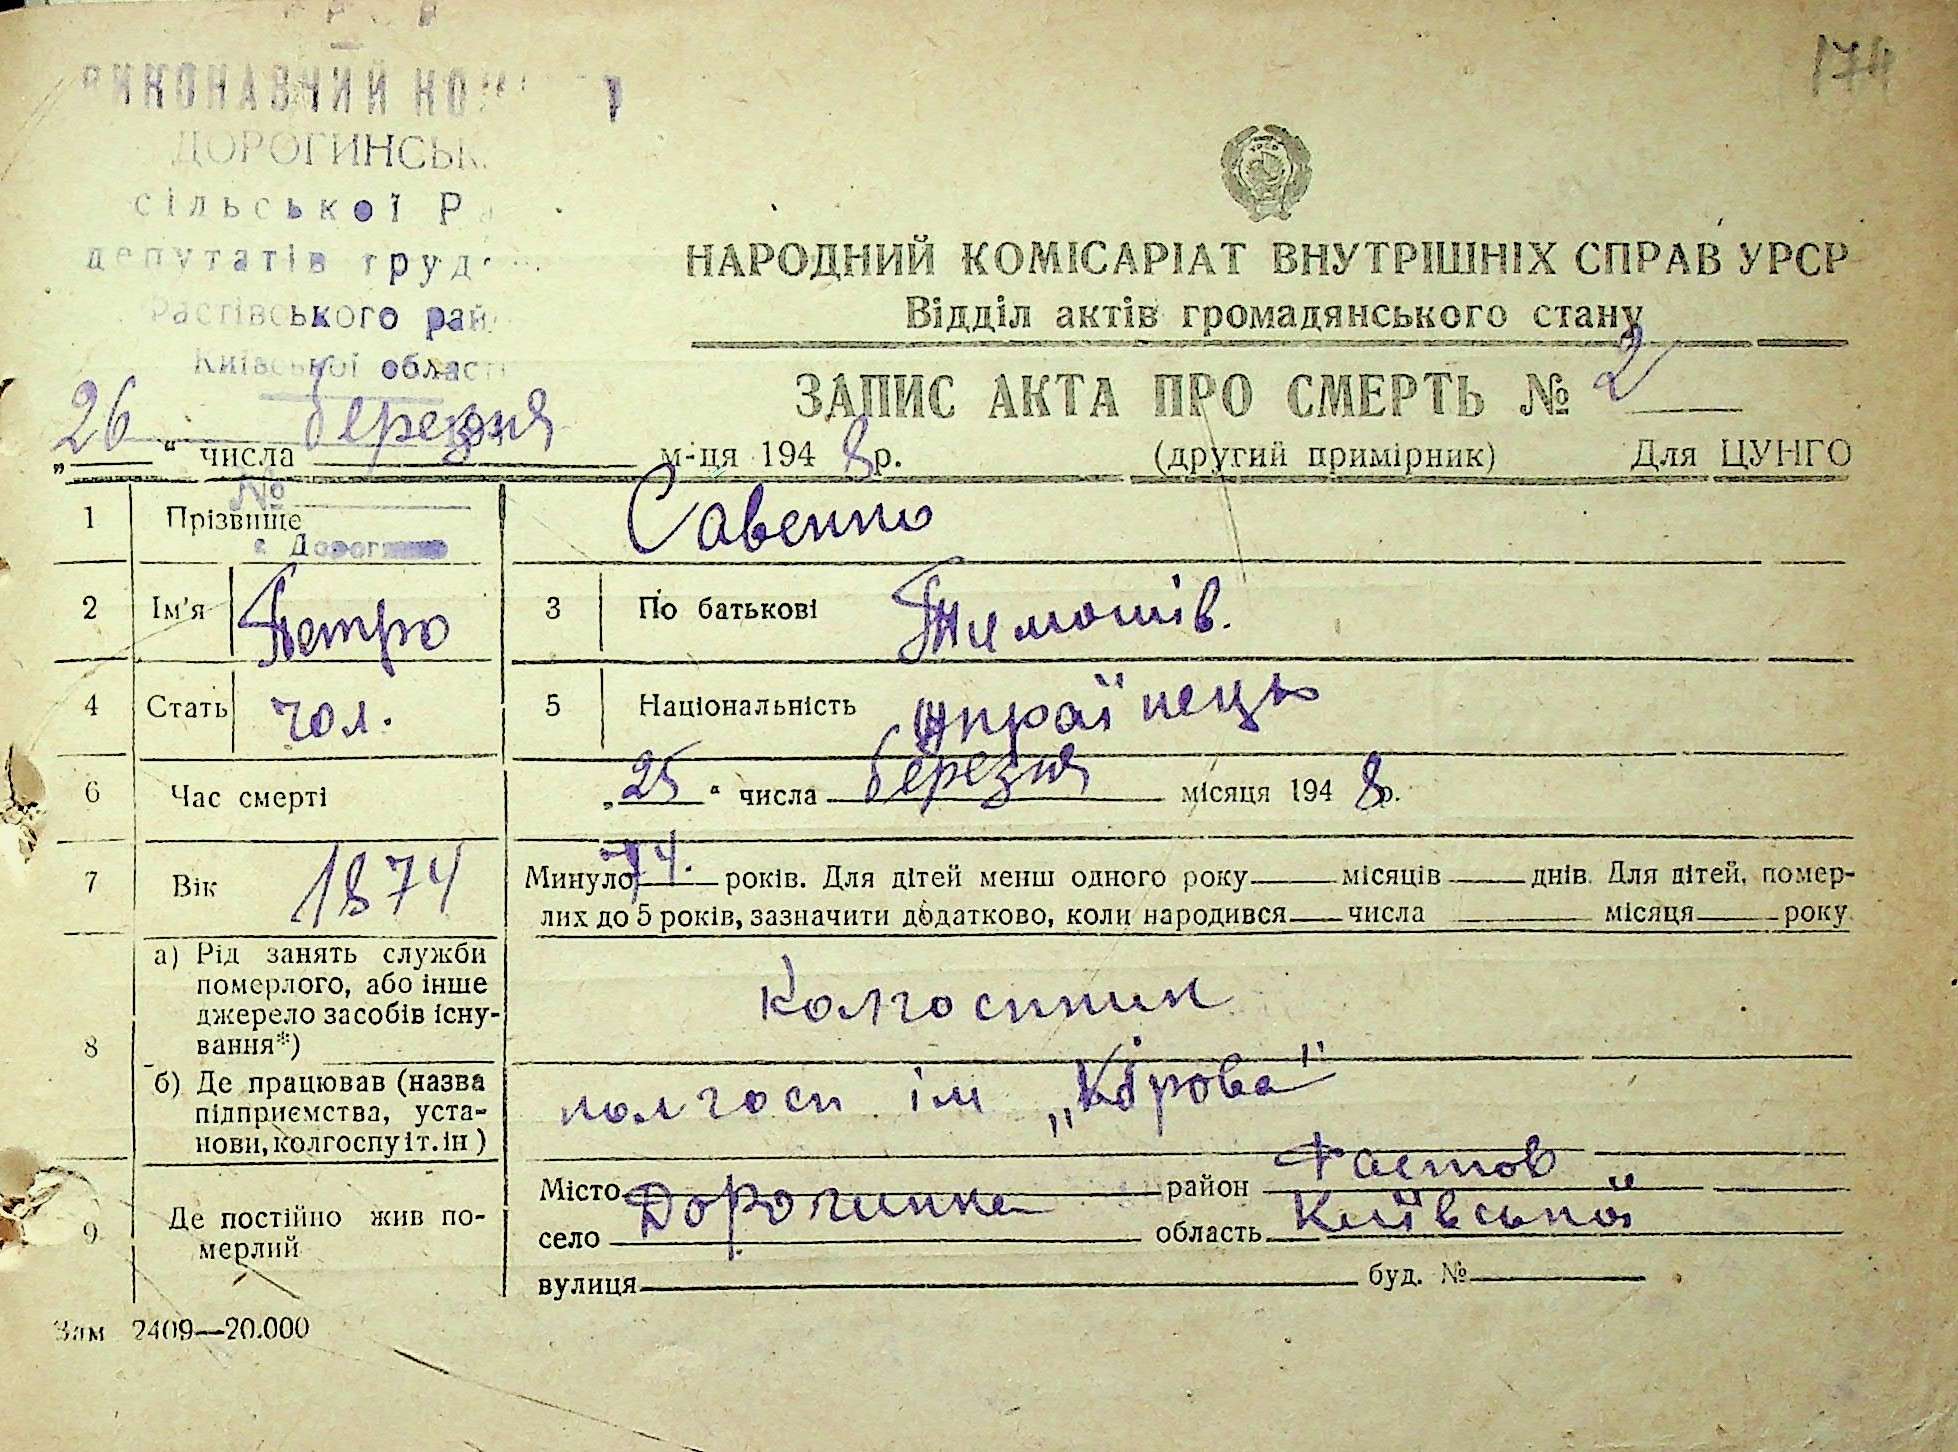 174
ВИКОНАВЧИЙ
ДОРОГИНСЬК
сільської Ра
депутатів труд
Фастівського рай
Київської област
НАРОДНИЙ КОМІСАРІАТ ВНУТРІШНІХ СПРАВ УРСР
Відділ актів громадянського стану
ЗАПИС АКТА ПРО СМЕРТЬ № 2
„26“ числа березня м-ця 1948 р. (другий примірник) Для ЦУНГО
№
1 Прізвище Савенко
с Дорог
2 Ім'я Петро 3 По батькові Тимошів.
4 Стать чол. 5 Національність українець
6 Час смерті „25“ числа березня місяця 1948 р.
7 Вік 1874 Минуло 74. років. Для дітей менш одного року місяців днів. Для дітей, помер-
лих до 5 років, зазначити додатково, коли народився числа місяця року
8 а) Рід занять служби
померлого, або інше
джерело засобів існу-
вання*) колгоспник
б) Де працював (назва
підприємства, уста-
нови, колгоспу і т. ін) колгосп ім „Кірова"
9 Де постійно жив по-
мерлий
Місто район Фастов
село Дорогинка область Київської
вулиця буд. №
Зам 2409—20.000